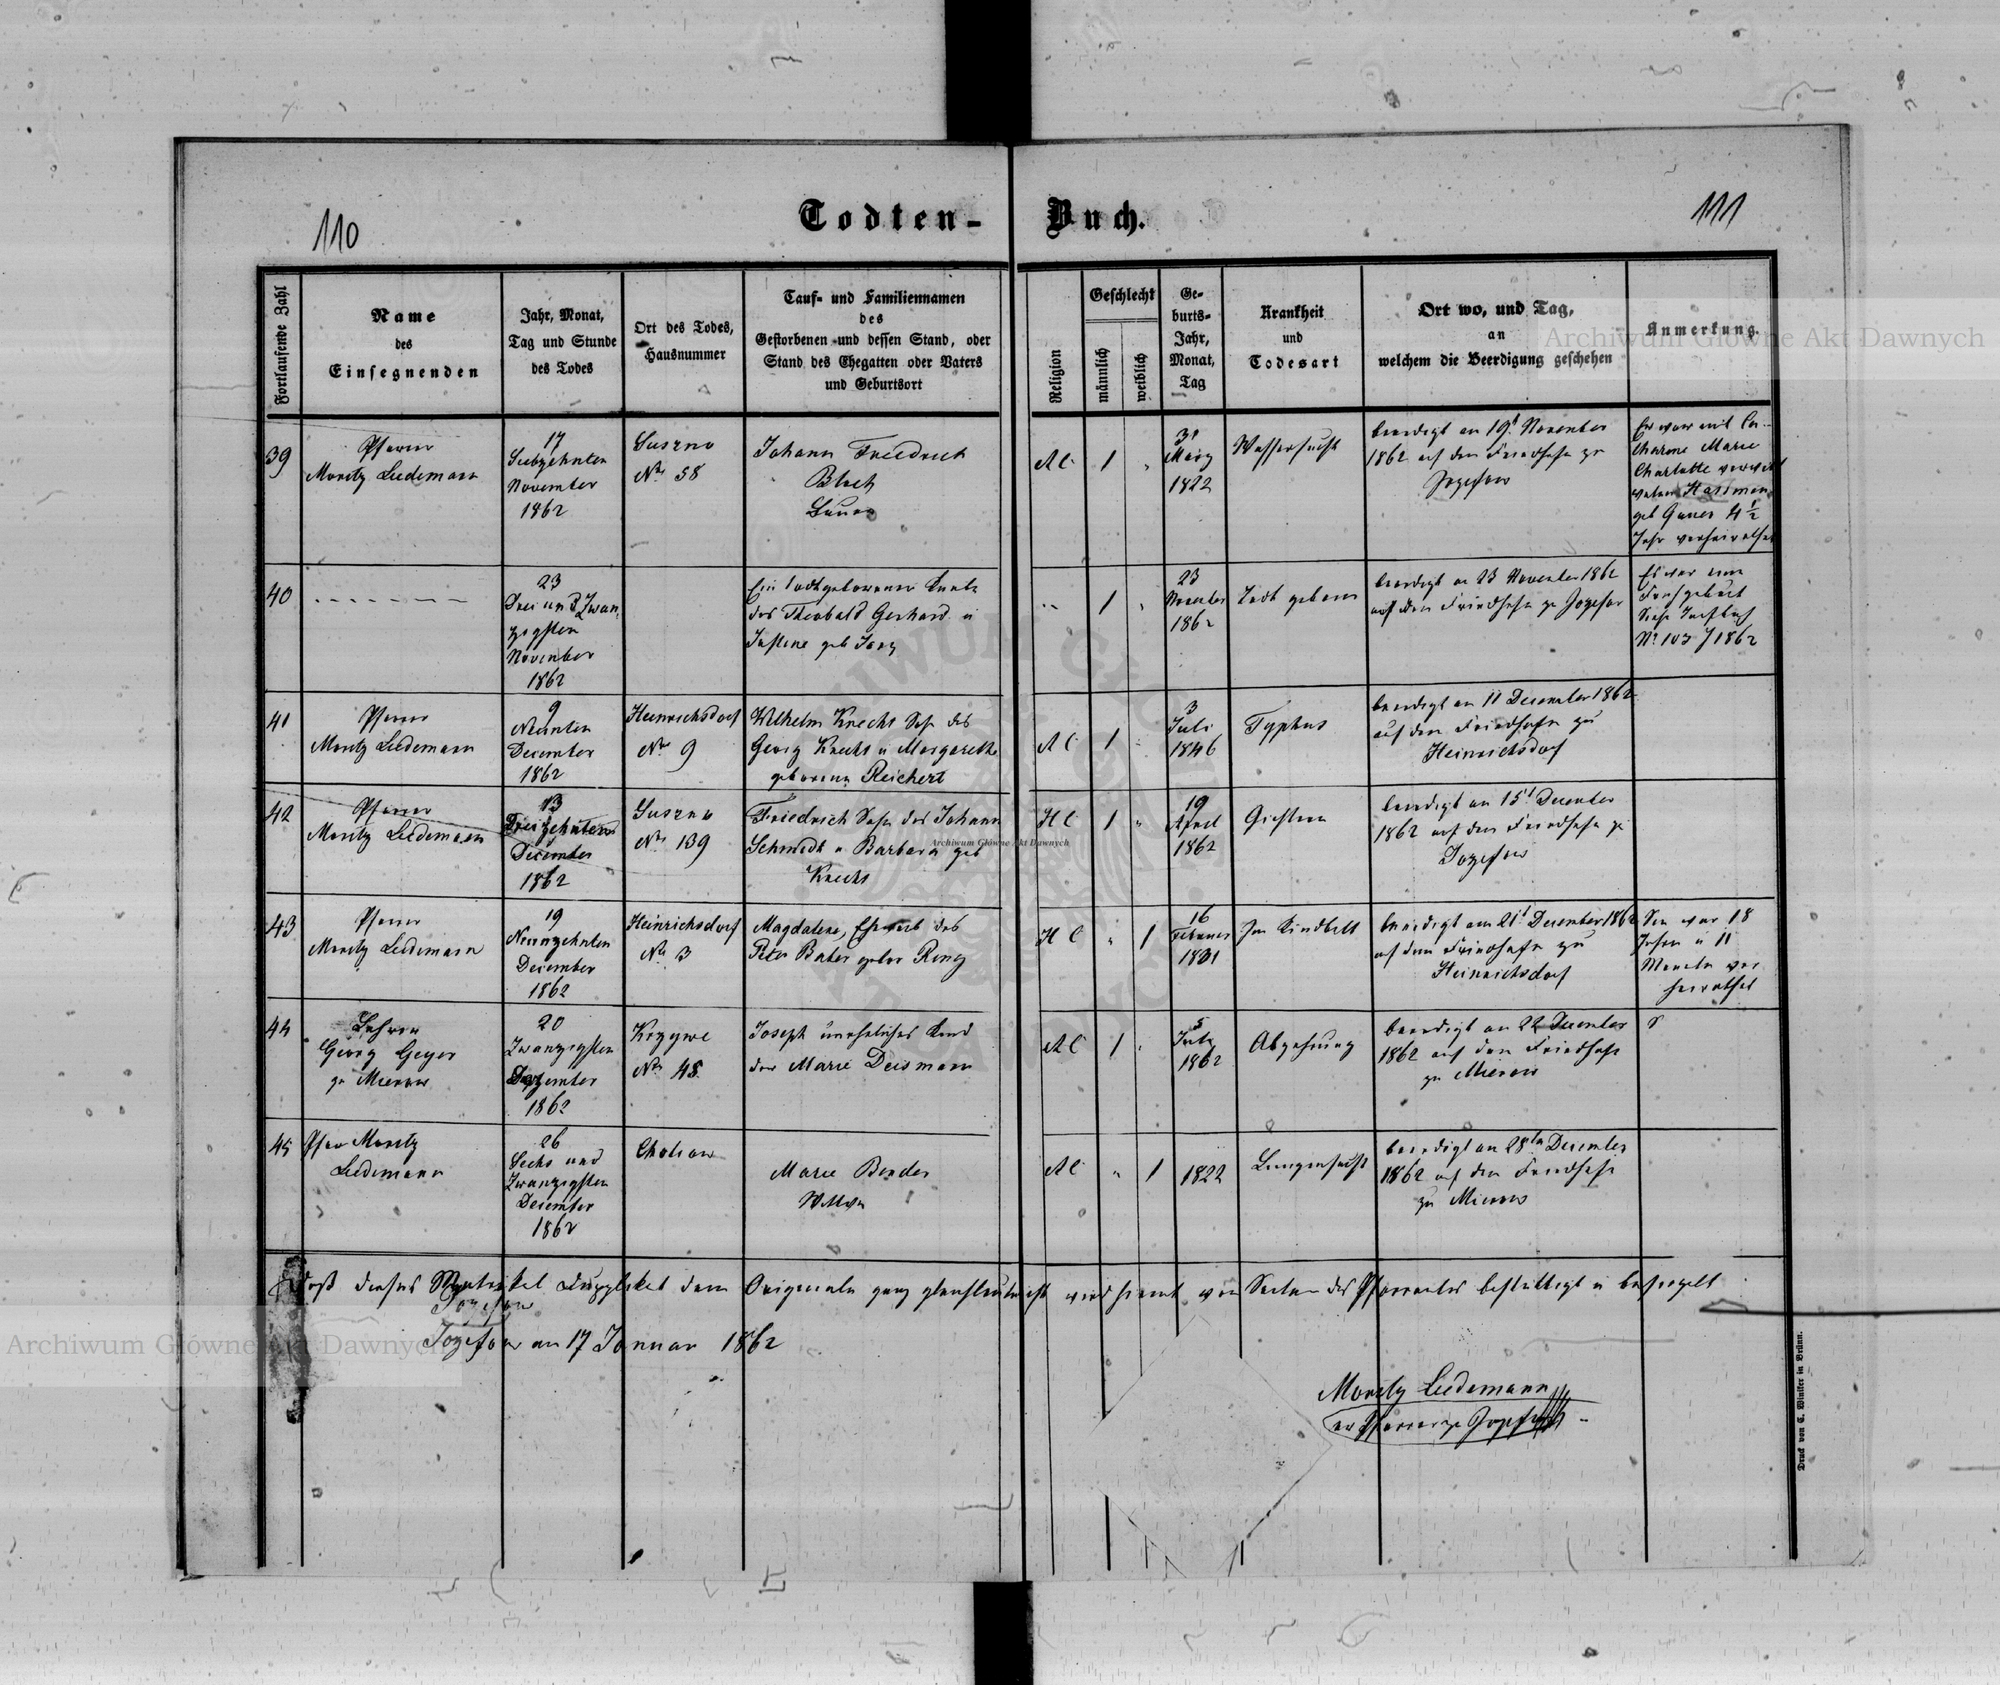 110
Todten-
Buch.
111
Fortlaufende Zahl
Name
des
Einsegnenden
Jahr, Monat,
Tag und Stunde
des Todes
Ort des Todes,
Hausnummer
Tauf- und Familiennamen
des
Gestorbenen und dessen Stand, oder
Stand des Ehegatten oder Vaters
und Geburtsort
Religion
Geschlecht
männlich
weiblich
Ge-
burts-
Jahr,
Monat,
Tag
Krankheit
und
Todesart
Ort wo, und Tag,
an
welchem die Beerdigung geschehen
Anmerkung.
Archiwum Główne Akt Dawnych
39
Pfarrer
Moritz Liedemann
17
Siebzehnten
November
1862
Suszno
No 58
Johann Friedrich
Bauer
AC
1
"
31
März
1822
Wassersucht
beerdigt am 19t November
1862 auf dem Friedhofe zu
Jozefow
Er war mit Ca-
tharine Marie
Charlotte verwit
geb Gauer 4 1/2
Jahr verheirathet
40
23
Drei und Zwan
zigsten
November
1862
Ein todtgeborener Knabe
des Theobald Gerhard u
Justine geb
1
"
23
November
1862
Todt geboren
beerdigt am 23 November 1862
auf dem Friedhofe zu Jozefow
Es war eine
Frühgeburt
Siehe Taufbuch
No 103 / 1862
41
Pfarrer
Moritz Liedemann
9
Neunten
December
1862
Heinrichsdorf
No 9
Wilhelm Knecht Sohn des
Georg Knecht u Margarethe
geborene Reichert
AC
1
"
3
Juli
1846
Typhus
beerdigt am 11 December 1862
auf dem Friedhofe zu
Heinrichsdorf
42
Pfarrer
Moritz Liedemann
13
Dreizehnten
December
1862
Suszno
No 139
Friedrich Sohn des Johann
Schmidt u Barbara geb
Knecht
HC
1
"
19
April
1862
beerdigt am 15t December
1862 auf dem Friedhofe zu
Jozefow
Archiwum Główne Akt Dawnych
43
Pfarrer
Moritz Liedemann
19
Neunzehnten
December
1862
Heinrichsdorf
No 3
Magdalena, Eheweib des
Peter
HC
"
1
16
Februar
Im Kindbett
beerdigt am 21t December 1862
auf dem Friedhofe zu
Heinrichsdorf
Sie war 18
Jahre u 11
Monate ver
heirathet
44
Lehrer
Georg Geyer
zu Mierow
20
Zwanzigsten
Dezember
1862
Krzywe
No 48
Joseph uneheliches Kind
der Marie Deismann
AC
1
"
5
1862
Abzehrung
beerdigt am 22 December
1862 auf dem Friedhofe
zu Mierow
45
Pfarr Moritz
Liedemann
26
Sechs und
Zwanzigsten
December
1862
Marie Bender
Wittwe
AC
"
1
1822
Lungensucht
beerdigt am 28ten December
1862 auf dem Friedhofe
zu Mierow
Daß dieses Matrikel Duplikat dem Originale ganz gleichlautend ist wird hiemit von Seiten des Pfarramtes bestättigt u besiegelt
Jozefow
Jozefow am 17 Januar 1862
Archiwum Główne Akt Dawnych
Moritz Liedemann
ev Pfarrer zu Jozefow
Druck von C. Winiker in Brünn.